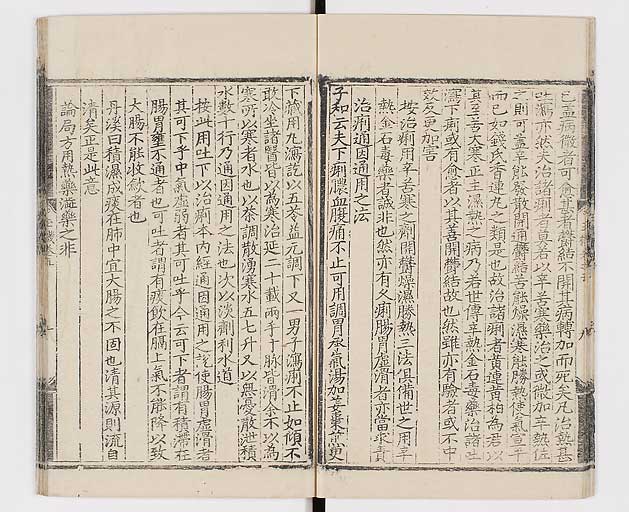 已蓋病微者可愈甚者鬱結不開其病轉加而死矣凡治熱甚
吐瀉亦然夫治諸痢者莫若以辛苦寒藥治之或微加辛熱佐
之則可蓋辛能發散開通鬱結苦能燥濕寒能勝熱使氣宣平
而已如錢氏香連丸之類是也故治諸痢者黃連黃柏為君以
其至苦大寒正主濕熱之病乃若世傳辛熱金石毒藥治諸吐
瀉下痢或有愈者以其善開鬱結故也然雖亦有驗者或不中
效反更加害
按治痢用辛苦寒之劑開鬱燥濕勝熱三法俱備世之用辛
熱金石毒藥者誠非也然亦有久痢腸胃虛滑者亦當求責
治痢通因通用之法
子和云夫下痢膿血腹痛不止可用調胃承氣湯加姜棗煎更
下藏用丸瀉訖以五苓益元調下又一男子瀉痢不止如傾不
敢冷坐諸醫皆以為寒治延二十載兩手寸脉皆滑余不以為
寒所以寒者水也以茶調散湧寒水五七升又以無憂散泄積
水數十行乃通因通用之法也次以淡劑利水道
按此用吐下以治痢本内經通因通用之訖使腸胃虛滑者
其可下乎中氣虛弱者其可吐乎今云可下者謂有積滯在
腸胃壅不通者也可吐者謂有痰飲在膈上氣不能降以致
大腸不能收歛者也
丹溪曰積濕成痰在肺中宜大腸之不固也清其源則流自
清矣正是此意
論局方用熱藥澁藥之非